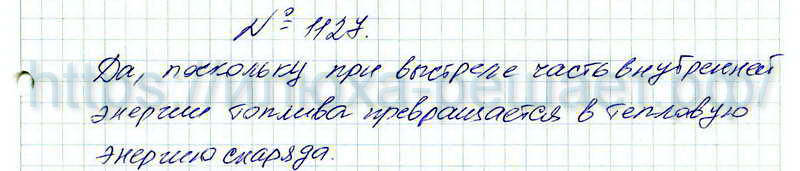 № 1127.
Да, поскольку при выстреле часть внутренней
энергии топлива превращается в тепловую
энергию снаряда.